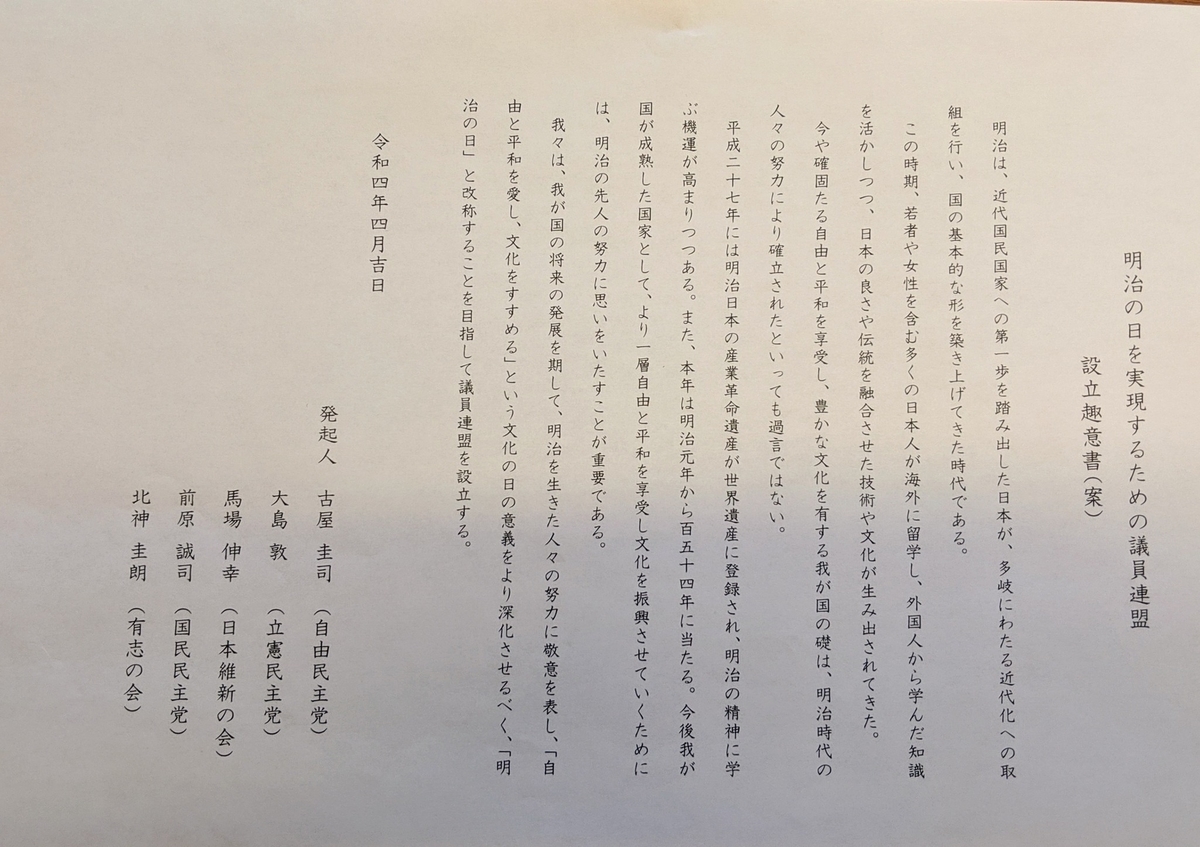 明治の日を実現するための議員連盟
設立趣意書（案）
明治は、近代国民国家への第一歩を踏み出した日本が、多岐にわたる近代化への取
組を行い、国の基本的な形を築き上げてきた時代である。
この時期、若者や女性を含む多くの日本人が海外に留学し、外国人から学んだ知識
を活かしつつ、日本の良さや伝統を融合させた技術や文化が生み出されてきた。
今や確固たる自由と平和を享受し、豊かな文化を有する我が国の礎は、明治時代の
人々の努力により確立されたといっても過言ではない。
平成二十七年には明治日本の産業革命遺産が世界遺産に登録され、明治の精神に学
ぶ機運が高まりつつある。また、本年は明治元年から百五十四年に当たる。今後我が
国が成熟した国家として、より一層自由と平和を享受し文化を振興させていくために
は、明治の先人の努力に思いをいたすことが重要である。
我々は、我が国の将来の発展を期して、明治を生きた人々の努力に敬意を表し、「自
由と平和を愛し、文化をすすめる」という文化の日の意義をより深化させるべく、「明
治の日」と改称することを目指して議員連盟を設立する。
令和四年四月吉日
発起人 古屋 圭司 （自由民主党）
大島 敦 （立憲民主党）
馬場 伸幸 （日本維新の会）
前原 誠司 （国民民主党）
北神 圭朗 （有志の会）